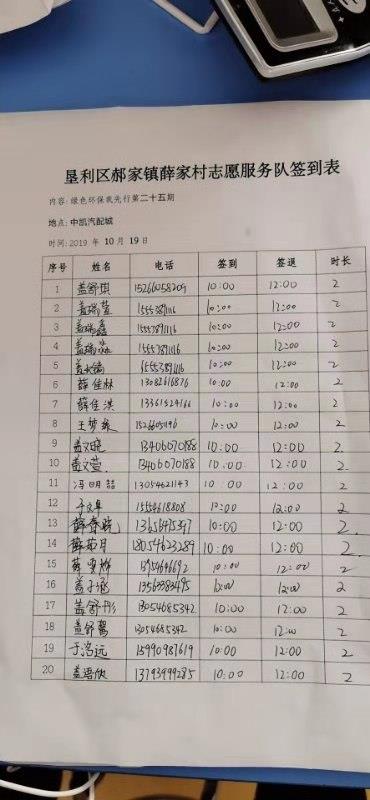 垦利区郝家镇薛家村志愿服务队签到表
内容: 绿色环保我先行第二十五期
地点: 中凯汽配城
时间: 2019 年 10 月 19 日
序号 姓名 电话 签到 签退 时长
1 盖舒琪 15266058209 10:00 12:00 2
2 盖瑞萱 10:00 12:00 2
3 盖瑞鑫 10:00 12:00 2
4 盖瑞淼 10:00 12:00 2
5 10:00 12:00 2
6 薛佳林 13082616876 10:00 12:00 2
7 薛佳淇 13361524166 10:00 12:00 2
8 王梦 10:00 12:00 2
9 孟文晓 13406070188 10:00 12:00 2
10 孟文萱 13406070188 10:00 12:00 2
11 冯明喆 13054621143 10 00 12:00 2
12 于文卓 15554618808 12:00 2
13 薛春晓 10:00 12:00 2
14 薛茹月 18054623289 10:00 12:00 2
15 薛 10:00 12:00 2
16 孟子涵 13563383495 10:00 12:00 2
17 盖舒彤 13054685342 10:00 12:00 2
18 盖舒馨 13054685342 10:00 12:00 2
19 于洺远 15990987619 10:00 12:00 2
20 盖语欣 13793999285 10:00 12:00 2